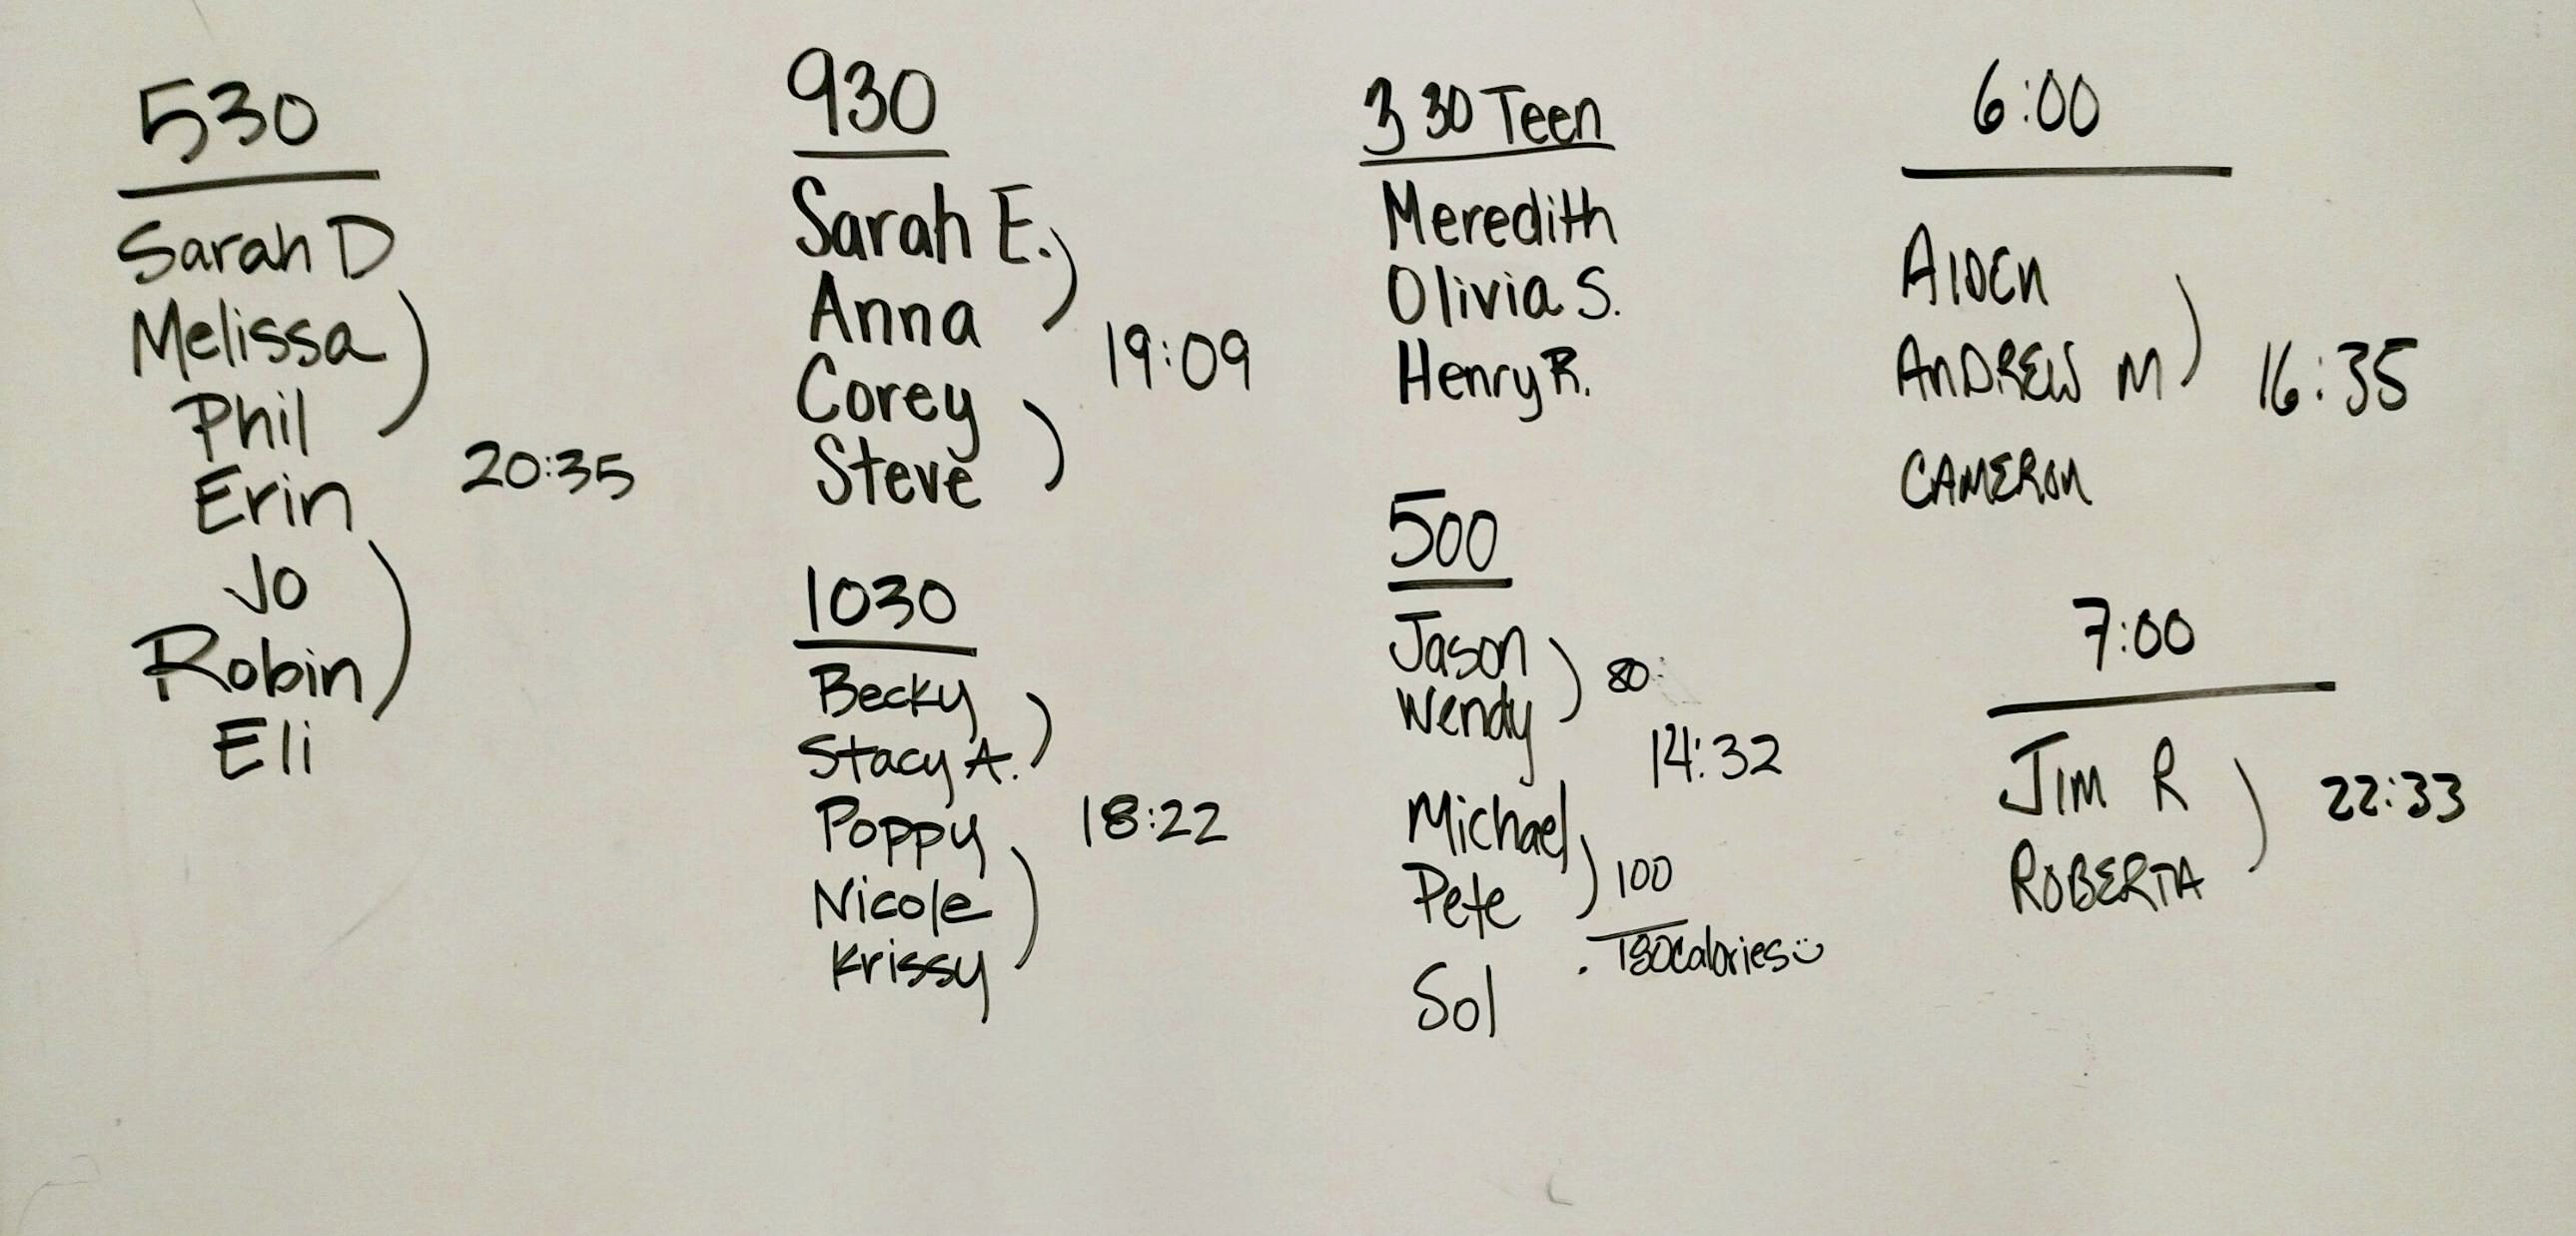 530
Sarah D
Melissa
Phil
Erin
20:35
Jo
Robin
Eli
930
Sarah E.
Anna
19:09
Corey
Steve
1030
Becky
Stacy A.
Poppy
18:22
Nicole
Krissy
3 30 Teen
Meredith
Olivia S.
Henry R.
500
Jason
80
Wendy
14:32
Michael
Pete
100
180calories
Sol
6:00
AIDEN
ANDREW M
16:35
CAMERON
7:00
JIM R
22:33
ROBERTA